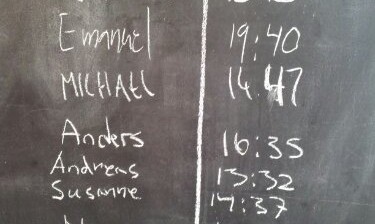 Emanuel 19:40
MICHAEL 14:47
Anders 16:35
Andreas 15:32
Susanne 17:37